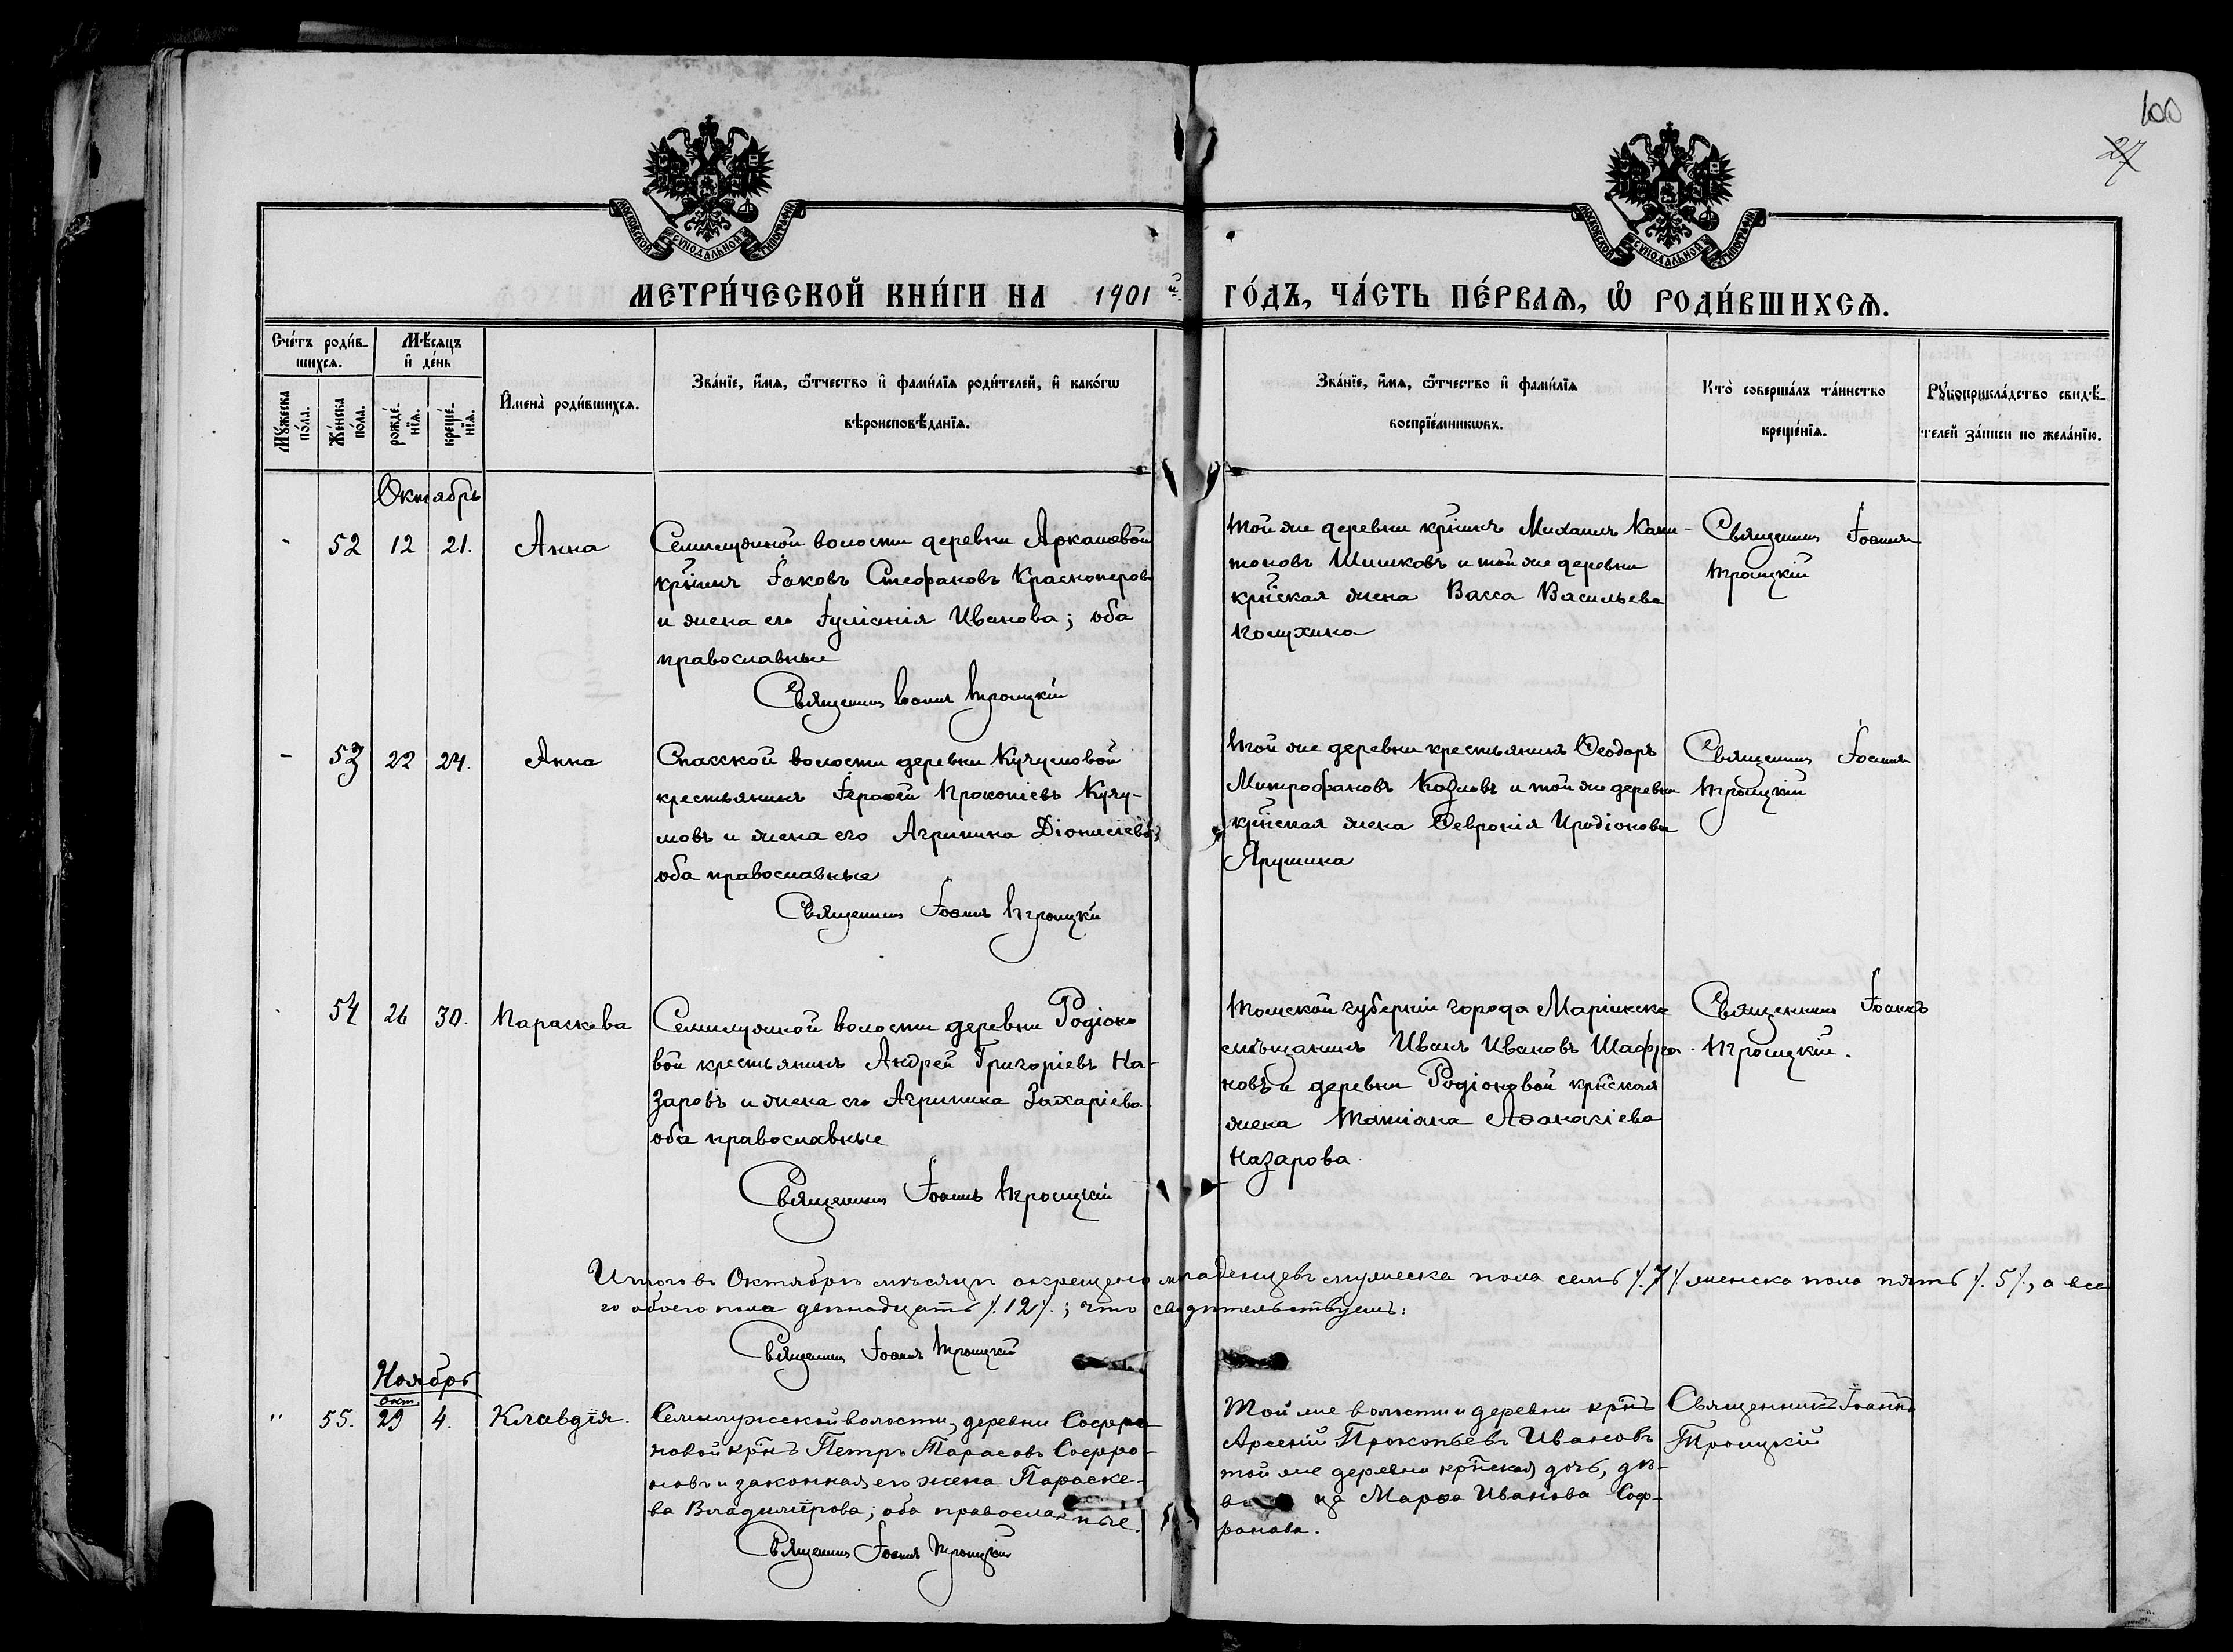 100
27
МОСКОВСКОЙ СѴНОДАЛЬНОЙ ТИПОГРАФІИ
МОСКОВСКОЙ СѴНОДАЛЬНОЙ ТИПОГРАФІИ
МЕТРИ́ЧЕСКОЙ КНИ́ГИ НА 1901й ГО́ДЪ, ЧА́СТЬ ПЕ́РВАѦ, Ѡ҆ РОДИ́ВШИХСѦ.
Сче́тъ роди́в-
шихсѧ.
Мѣ́сѧцъ
и҆ де́нь
Мꙋ́жеска по́ла.
Же́нска по́ла.
рожде́-
нїѧ.
креще́-
нїѧ.
И҆мена̀ роди́вшихсѧ.
Зва́нїе, и҆́мѧ, ѻ҆́тчество и҆ фами́лїѧ роди́телей, и҆ како́гѡ
вѣроисповѣ́данїѧ.
Зва́нїе, и҆́мѧ, ѻ҆́тчество и҆ фами́лїѧ
воспрїе́мникѡвъ.
Кто̀ соверша́лъ та́инство
креще́нїѧ.
Рꙋкоприкла́дство свидѣ́-
телей за́писи по жела́нїю.
Октябрь
- 52 12 21. Анна
Семилужной волости деревни Аркашевой
кр̃нинъ Іаковъ Стефановъ Красноперовъ
и жена его Іуліанія Иванова; оба
православные
Священникъ Іоаннъ Троицкій
Той же деревни кр̃нинъ Михаилъ Капи-
тоновъ Шишковъ и той же деревни
кр̃нская жена Васса Васильева
Священникъ Іоаннъ
Троицкій
- 53 22 24. Анна
Спасской волости деревни Кучумовой
крестьянинъ Іероѳей Прокопіевъ Кучу-
мовъ и жена его Агрипина Діонисіева;
оба православные
Священникъ Іоаннъ Троицкій
Той же деревни крестьянинъ Ѳеодоръ
Митрофановъ Козловъ и той же деревни
кр̃нская жена Ѳевронія Иродіонова
Ярушина
Священникъ Іоаннъ
Троицкій
54 26 30. Параскева
Семилужной волости деревни Родіоно
вой крестьянинъ Андрей Григоріевъ На-
заровъ и жена его Агрипина Захаріева
оба православные
Священникъ Іоаннъ Троицкій
Томской губерніи города Маріинска
мѣщанинъ Иванъ Ивановъ Шафра-
новъ и деревни Родіоновой кр̃нская
жена Татіана Аѳанасіева
Назарова
Священникъ Іоаннъ
Троицкій.
Итого въ Октябрѣ мѣсяцѣ окрещено младенцевъ мужеска пола семь /.7/ женска пола пять /.5/., а все
го обоего пола двѣнадцать /.12/.; что свидѣтельствуемъ:
Священникъ Іоаннъ Троицкій
Ноябрь
окт.
" 55. 29 4. Клавдія.
Семилужской волости, деревни Софро-
новой кр̃нъ Петръ Тарасовъ Софро-
новъ и законная его жена Параске-
ва Владимірова; оба православные.
Священникъ Іоаннъ Троицкій
Той же волости и деревни кр̃нъ
Арсеній Прокопьевъ Ивановъ
той же деревни кр̃нская дочь, дѣ-
ви ца Марѳа Иванова Соф-
ронова.
Священникъ Іоаннъ
Троицкій